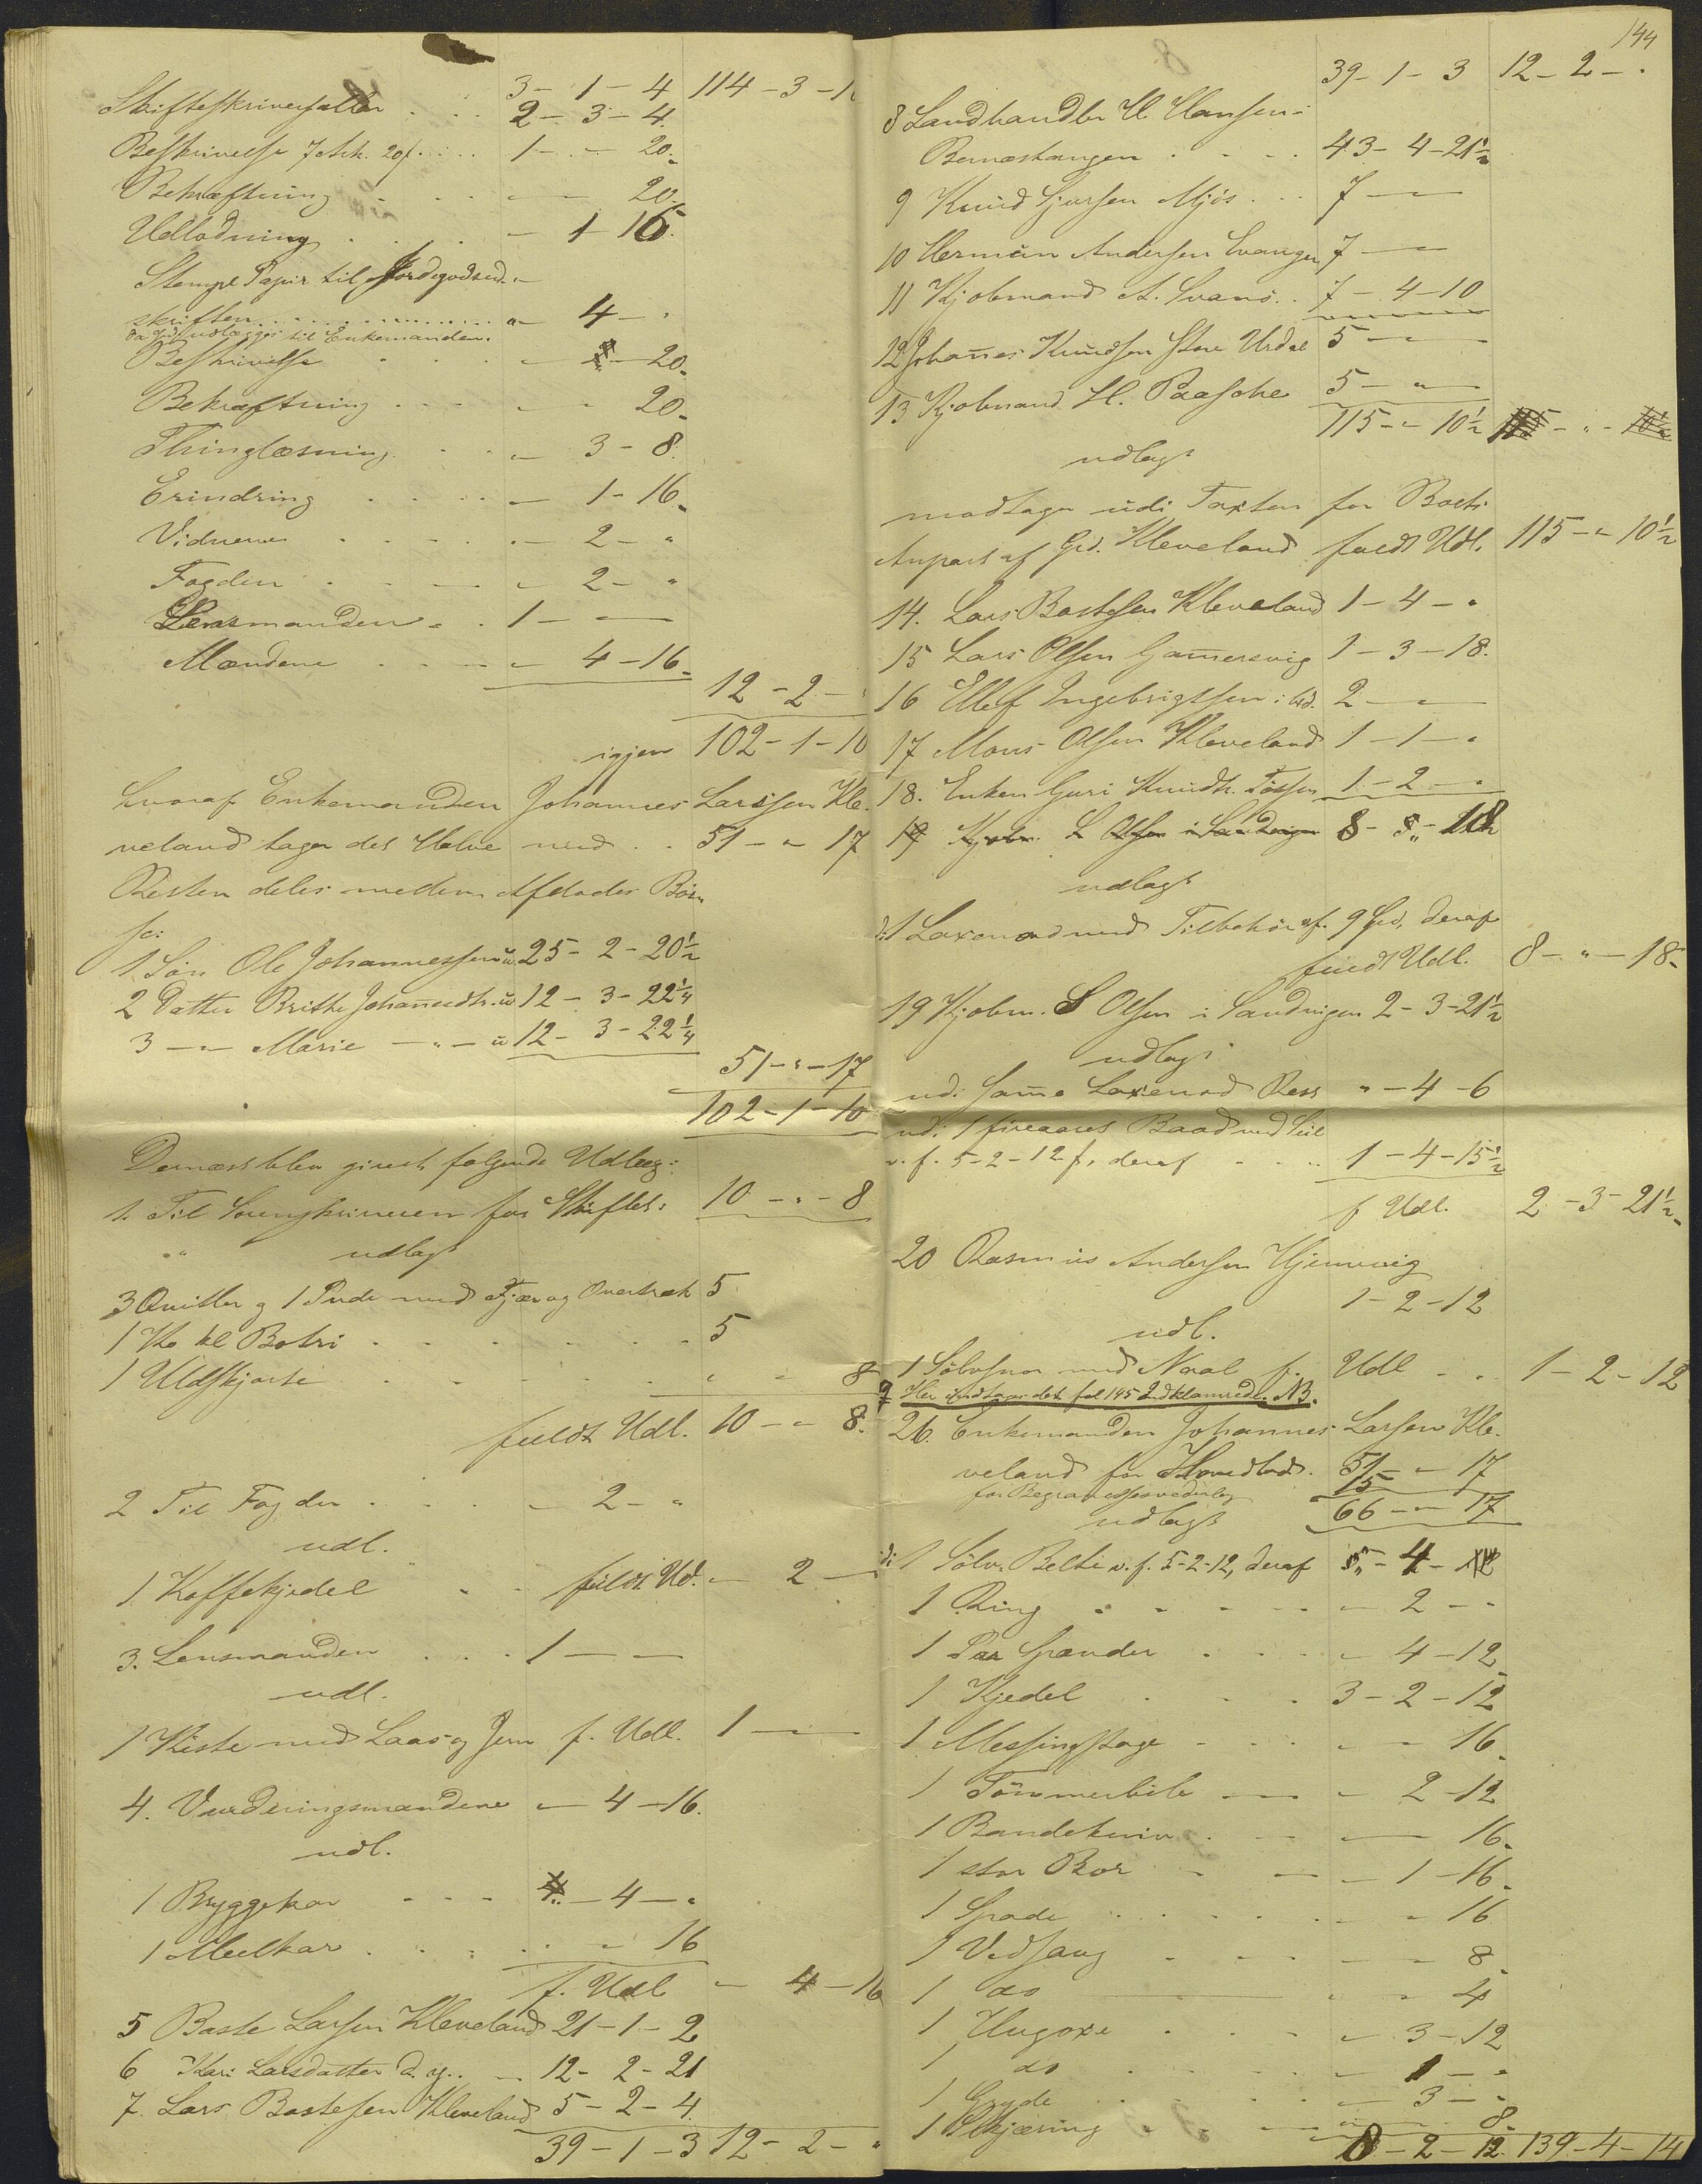 3 - 1 - 4 114 - 3 - 1
Skifteskriversaller . . . 2 - 3 - 4.
Beskrivelse 7 Ark. 20 f. . . . 1 - " - 20.
Bekræftning . . . - " - 20.
Udlodning . . . - 1 - 16.
Stempl. Papir til Jordegodsud-
skriften . . . " - 4 - "
da Gd. udlægges til Enkemanden.
Beskrivelse . . . - " - 20.
Bekræftning . . . - " - 20.
Thinglæsning . . . - 3 - 8.
Erindring . . . - 1 - 16.
Vidnerne . . . - 2 - "
Fogden . . . - 2 - "
Lensmanden . . 1 - " -
Mændene . . . - 4 - 16.
12 - 2 - "
igjen 102 - 1 - 10
hvoraf Enkemanden Johannes Larssen Kle-
veland tager det Halve med . . 51 - " 17
Resten deles mellem Afdødes Børn
sc:
1. Søn Ole Johannessen u. 25 - 2 - 20½
2 Datter Brithe Johannesdtr. u. 12 - 3 - 22¼
3 - " - Marie - " - u 12 - 3 - 22¼
51 - " - 17
102 - 1 - 10
Dernæst blev givet følgende Udlæg:
1. Til Sorenskriveren for Skiftet: 10 - " - 8
" udlagt
3 Qvitler og 1 Pude med Fjær og Overtræk 5
1 Ko kl Botri . . . 5
1 Uldskjorte . . . " " 8
fuldt Udl. 10 - " 8.
2 Til Fogden . . . - 2 - "
udl.
1 Kaffekjedel . . fuldt Ud. - 2 -
3. Lensmanden . . . 1 - " -
udl.
1 Kiste med Laas og Jern f. Udl. 1 - " -
4. Vurderingsmændene - 4 - 16.
udl.
1 Bryggekar . . . " - 4 - "
1 Meelkar . . . " - 16
f. Udl - 4 - 16
5 Baste Larsen Kleveland 21 - 1 - 2
6 Kari Larsdatter d. y. . - 12 - 2 - 21
7. Lars Bastesen Kleveland 5 - 2 - 4.
39 - 1 - 3 12 - 2 - "
144
39 - 1 - 3 12 - 2 - "
8 Landhandler H. Hansen i
Bernestangen . . . 43 - 4 - 21½
9 Knud Sjursen Mjös . . . 7 - " -
10 Herman Andersen Evanger 7 - " -
11 Kjøbmand A. Svanö . . 7 - 4 - 10
12 Johannes Knudsen Store Urdal 5 - " -
13 Kjøbmand H. Paasche 5 - " -
115 - " 10½
udlagt
modtager udi Taxten for Boets
Anpart af Grd. Kleveland fuldt Udl. 115 - " 10½
14. Lars Bastesen Kleveland 1 - 4 - "
15 Lars Olsen Gammersvig 1 - 3 - 18.
16 Ellef Ingebrigtsen ibd. 2 - " -
17 Mons Olsen Kleveland 1 - 1 - "
18. Enken Guri Knudtr. Tössen 1 - 2 - "
19 Kjøbm. L Olsen i Sandvigen 8 - " - 18
udlagt
di 1 Laxenod med Tilbehör af. 9 Spd, deraf
fuldt Udl. 8 - " - 18.
19 Kjøbm. S Olsen i Sandvigen 2 - 3 - 21½
udlagt
udi samme Laxenod Rest " - 4 - 6
udi 1 fireaares Baad med Seil
v. f. 5-2-12 f, deraf . . . 1 - 4 - 15½
f Udl. 2 - 3 - 21½.
20 Rasmus Andersen Hjemvig
1 - 2 - 12
udl.
1 Sölvsnor med Naal f. Udl . . . 1 - 2 - 12
Her indtages det fol 145 Indklamrede. NB.
26. Enkemanden Johannes Larsen Kle-
veland for Hovedlod. 51 - " - 17
for Begravelsesvederlag 15 -
udlagt 66 - " - 17
di 1 Sölv. Belte v. f. 5-2-12, deraf " - 4 -
1 Ring . . . - 2 - "
1 Par Spænder . . . - 4 - 12
1 Kjedel . . . 3 - 2 - 12
1 Messingstage . . . - " - 16.
1 Tömmerbile . . . - 2 - 12
1 Bandekniv . . . - " - 16.
1 stor Bor . . . - 1 - 16.
1 Spade . . . - " - 16
1 Vedsaug . . . - " - 8.
1 do . . . " - 4
1 Hugoxe . . . - 3 - 12
1 do . . . - 1 - "
1 Gryde . . . - 3 - "
1 Skjæring . . . " - 8.
8 - 2 - 12. 139 - 4 - 14